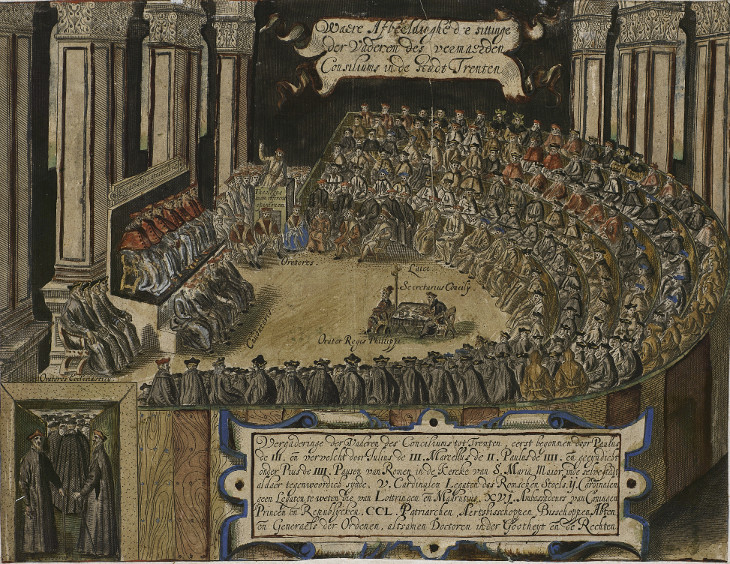 Waere Afbeeldinghe d'e sittinge
der Vaderen des vermaerden
Consiliums in de stadt Trenten
Oratores
Laici
Secretarius Concily
Orator Regis Philippi
Oratores Eccleasastici
Vergaderinge der Vaderen des Consiliums tot Trenten, eerst begonnen door Paulus
de III. en vervolcht door Julius de III. Marcellus de II. Paulus de IIII. en geeyndicht
onder Pius de IIII. Paysen van Romen, in de Kercke van S. Maria Maior, inde selve stadt
aldaer tegenwoordich synde, V. Cardinalen Legaten des Roomschen Stoels, ij. Cardinalen
geen Legaten te weten die van Lottringen en Madrutius, XVI. Ambassadeurs van Coningen
Princen en Republycken, CCL. Patriarchen, Aertsbisschoppen, Bisschoppen, Abten,
en Generaels der Ordenen, altsamen Doctoren inder Godtheyt en de Rechten.